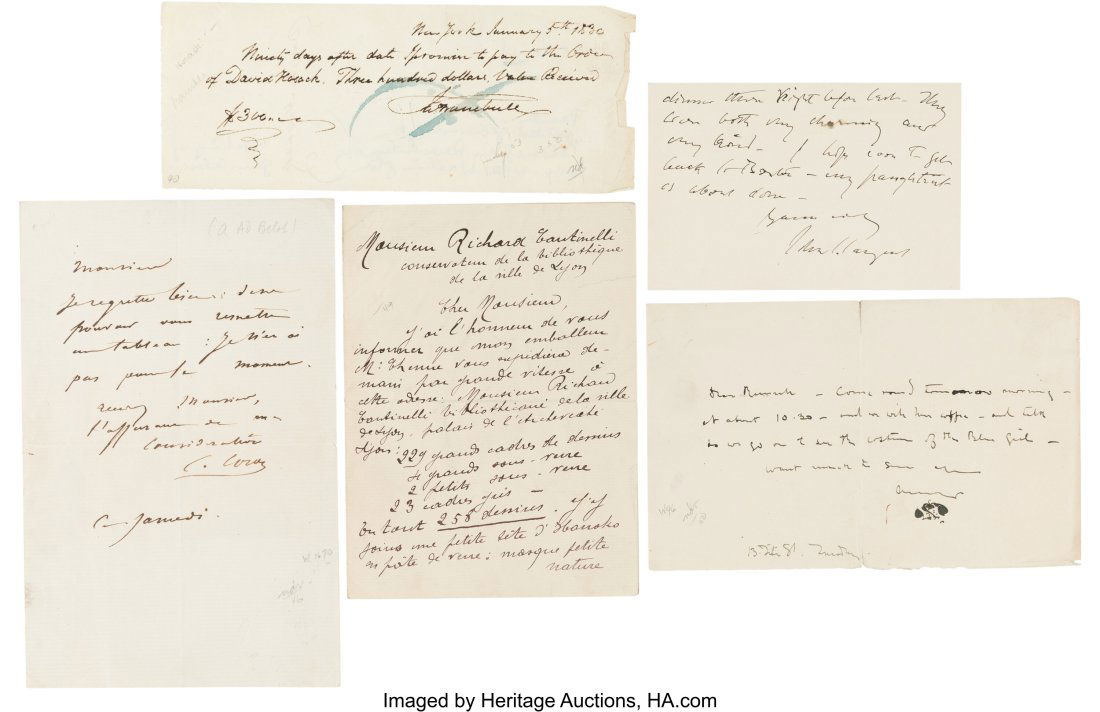 New York January 5th 1830
Ninety days after date I promise to pay to the Order
of David Hosack. Three hundred dollars, Value Received
$300
Jn Trumbull
90
dinner there night before last. They
were both very charming and
very kind. I hope soon to get
back to Boston - my
is about done -
John S. Sargent
(a Ad Belot)
Monsieur
Je regrette bien de ne
pouvoir vous remettre
un tableau : Je n'en ai
pas pour le moment.
recevez Monsieur,
l'assurance de ma
Considération
C. Corot
Ce Samedi.
Monsieur Richard Cantinelli
conservateur de la bibliothèque
de la ville de Lyon
Cher Monsieur,
J'ai l'honneur de vous
informer que mon emballeur
Mr. Thenne vous expédiera de-
main par grande vitesse à
cette adresse: Monsieur Richard
Cantinelli bibliothécaire de la ville
de Lyon, palais de l'Archevêché
Lyon:
229 grands cadres de dessins
4 grands sous-verre
2 petits sous-verre
23 cadres gris -
En tout 258 dessins. J'y
joins une petite tête d'Hanako
en pâte de verre; masque petite
nature
Come round tomorrow morning -
At about 10.30 - and
as we go on to see the of the Blue Girl -
want much to see you
Imaged by Heritage Auctions, HA.com